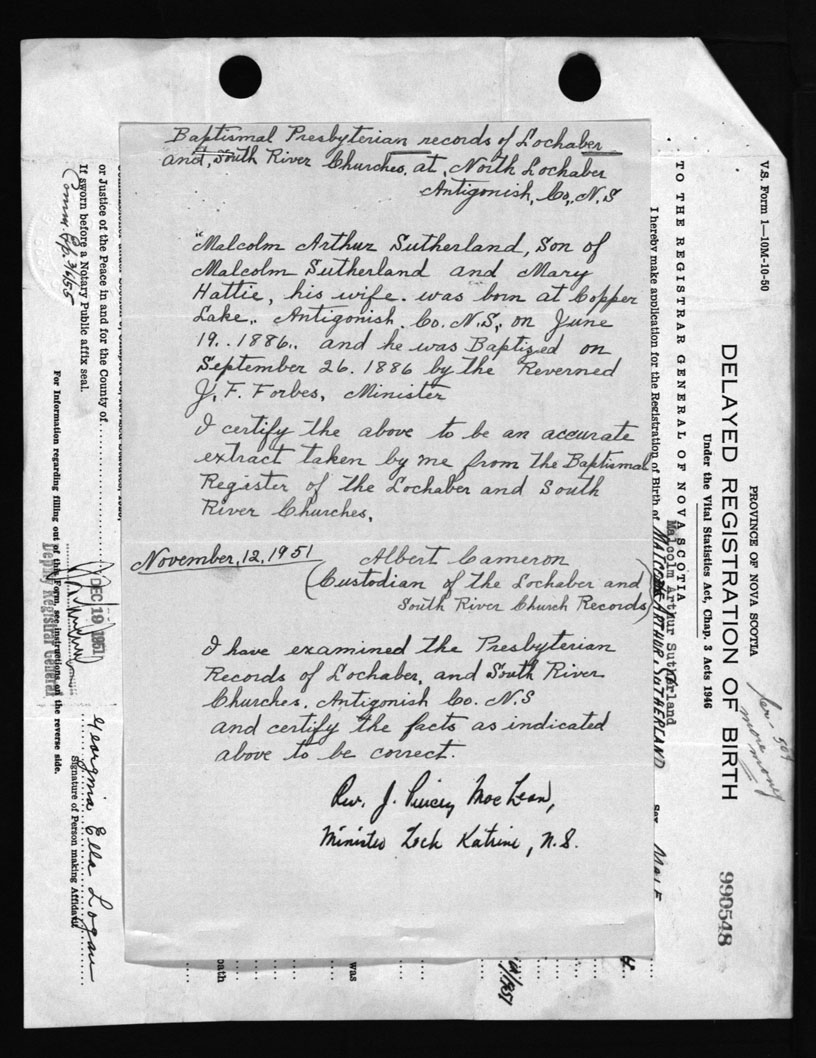 Baptismal Presbyterian records of Lochaber
and, South River Churches, at, North Lochaber
Antigonish, Co., N.S
"Malcolm Arthur Sutherland, Son of
Malcolm Sutherland and Mary
Hattie, his wife. was born at Copper
Lake,. Antigonish. Co. N.S, on June
19.. 1886.. and he was Baptized on
September 26. 1886 by the Reverned
J, F. Forbes, Minister
I certify the above to be an accurate
extract taken by me from the Baptismal
Register of the Lochaber and South
River Churches,
November, 12, 1951 Albert Cameron
(Custodian of the Lochaber and
South River Church Records)
I have examined the Presbyterian
Records of Lochaber, and South River
Churches. Antigonish Co. N.S
and certify the facts as indicated
above to be correct.
Rev. J. MacLean,
Minister Loch Katrine, N.S.
V.S. Form 1—10M-10-50
PROVINCE OF NOVA SCOTIA
DELAYED REGISTRATION OF BIRTH
990548
Under the Vital Statistics Act, Chap. 3 Acts 1946
more money
TO THE REGISTRAR GENERAL OF NOVA SCOTIA
Malcolm Arthur Sutherland
I hereby make application for the Registration of Birth of MALCOLM ARTHUR SUTHERLAND Sex MALE
was
oath
or Justice of the Peace in and for the County of
If sworn before a Notary Public affix seal.
DEC 19 1951
Deputy Registrar General
Georgina Ella Logan
Signature of Person making Affidavit
For Information regarding filling out of this Form, see instructions on the reverse side.